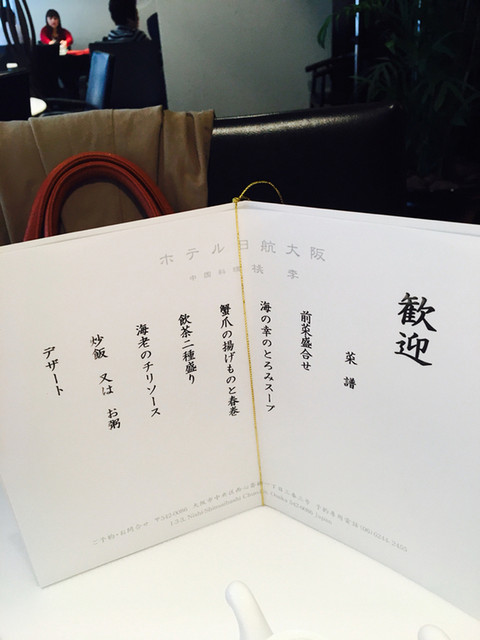 ホテル日航大阪
中国料理 桃李
歓迎
菜譜
前菜盛合せ
海の幸のとろみスープ
蟹爪の揚げものと春巻
飲茶二種盛り
海老のチリソース
炒飯 又は お粥
デザート
ご予約・お問合せ 〒542-0086 大阪市中央区西心斎橋